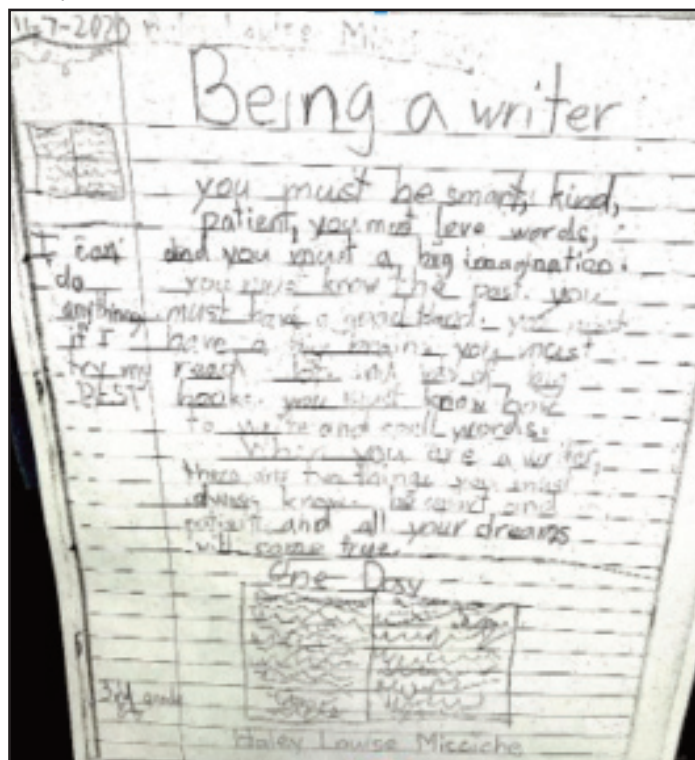 11-7-2020 Louise
Being a writer
you must be smart, kind,
patient, you must love words,
and you must a big imagination.
you must know the past. you
must have a good you must
have a big you must
read lots and lots of big
books. you must know how
to write and spell words.
When you are a writer,
there are two things you must
always know. be and
patient and all your dreams
will come true.
I can
do
anything
if I
try my
BEST
One Day
3rd grade
Haley Louise Misciche